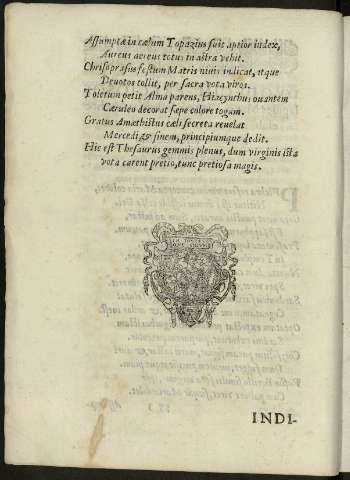 Assumptæ in cælum Topazius fuit aptior index,
Aureus aereus totus in astra vehit.
Chrisoprasius festum Matris niuis indicat, atque
Deuotos tollit, per sacra vota viros.
Toletum petit Alma parens, Hiacynthus ouantem
Cæruleo decorat sæpe colore togam.
Gratus Amæthistus cæli secreta reuelat
Mercedi, & finem, principiumque dedit.
Hic est Thesaurus gemmis plenus, dum virginis icta
vota carent pretio, tunc pretiosa magis.
INDI-